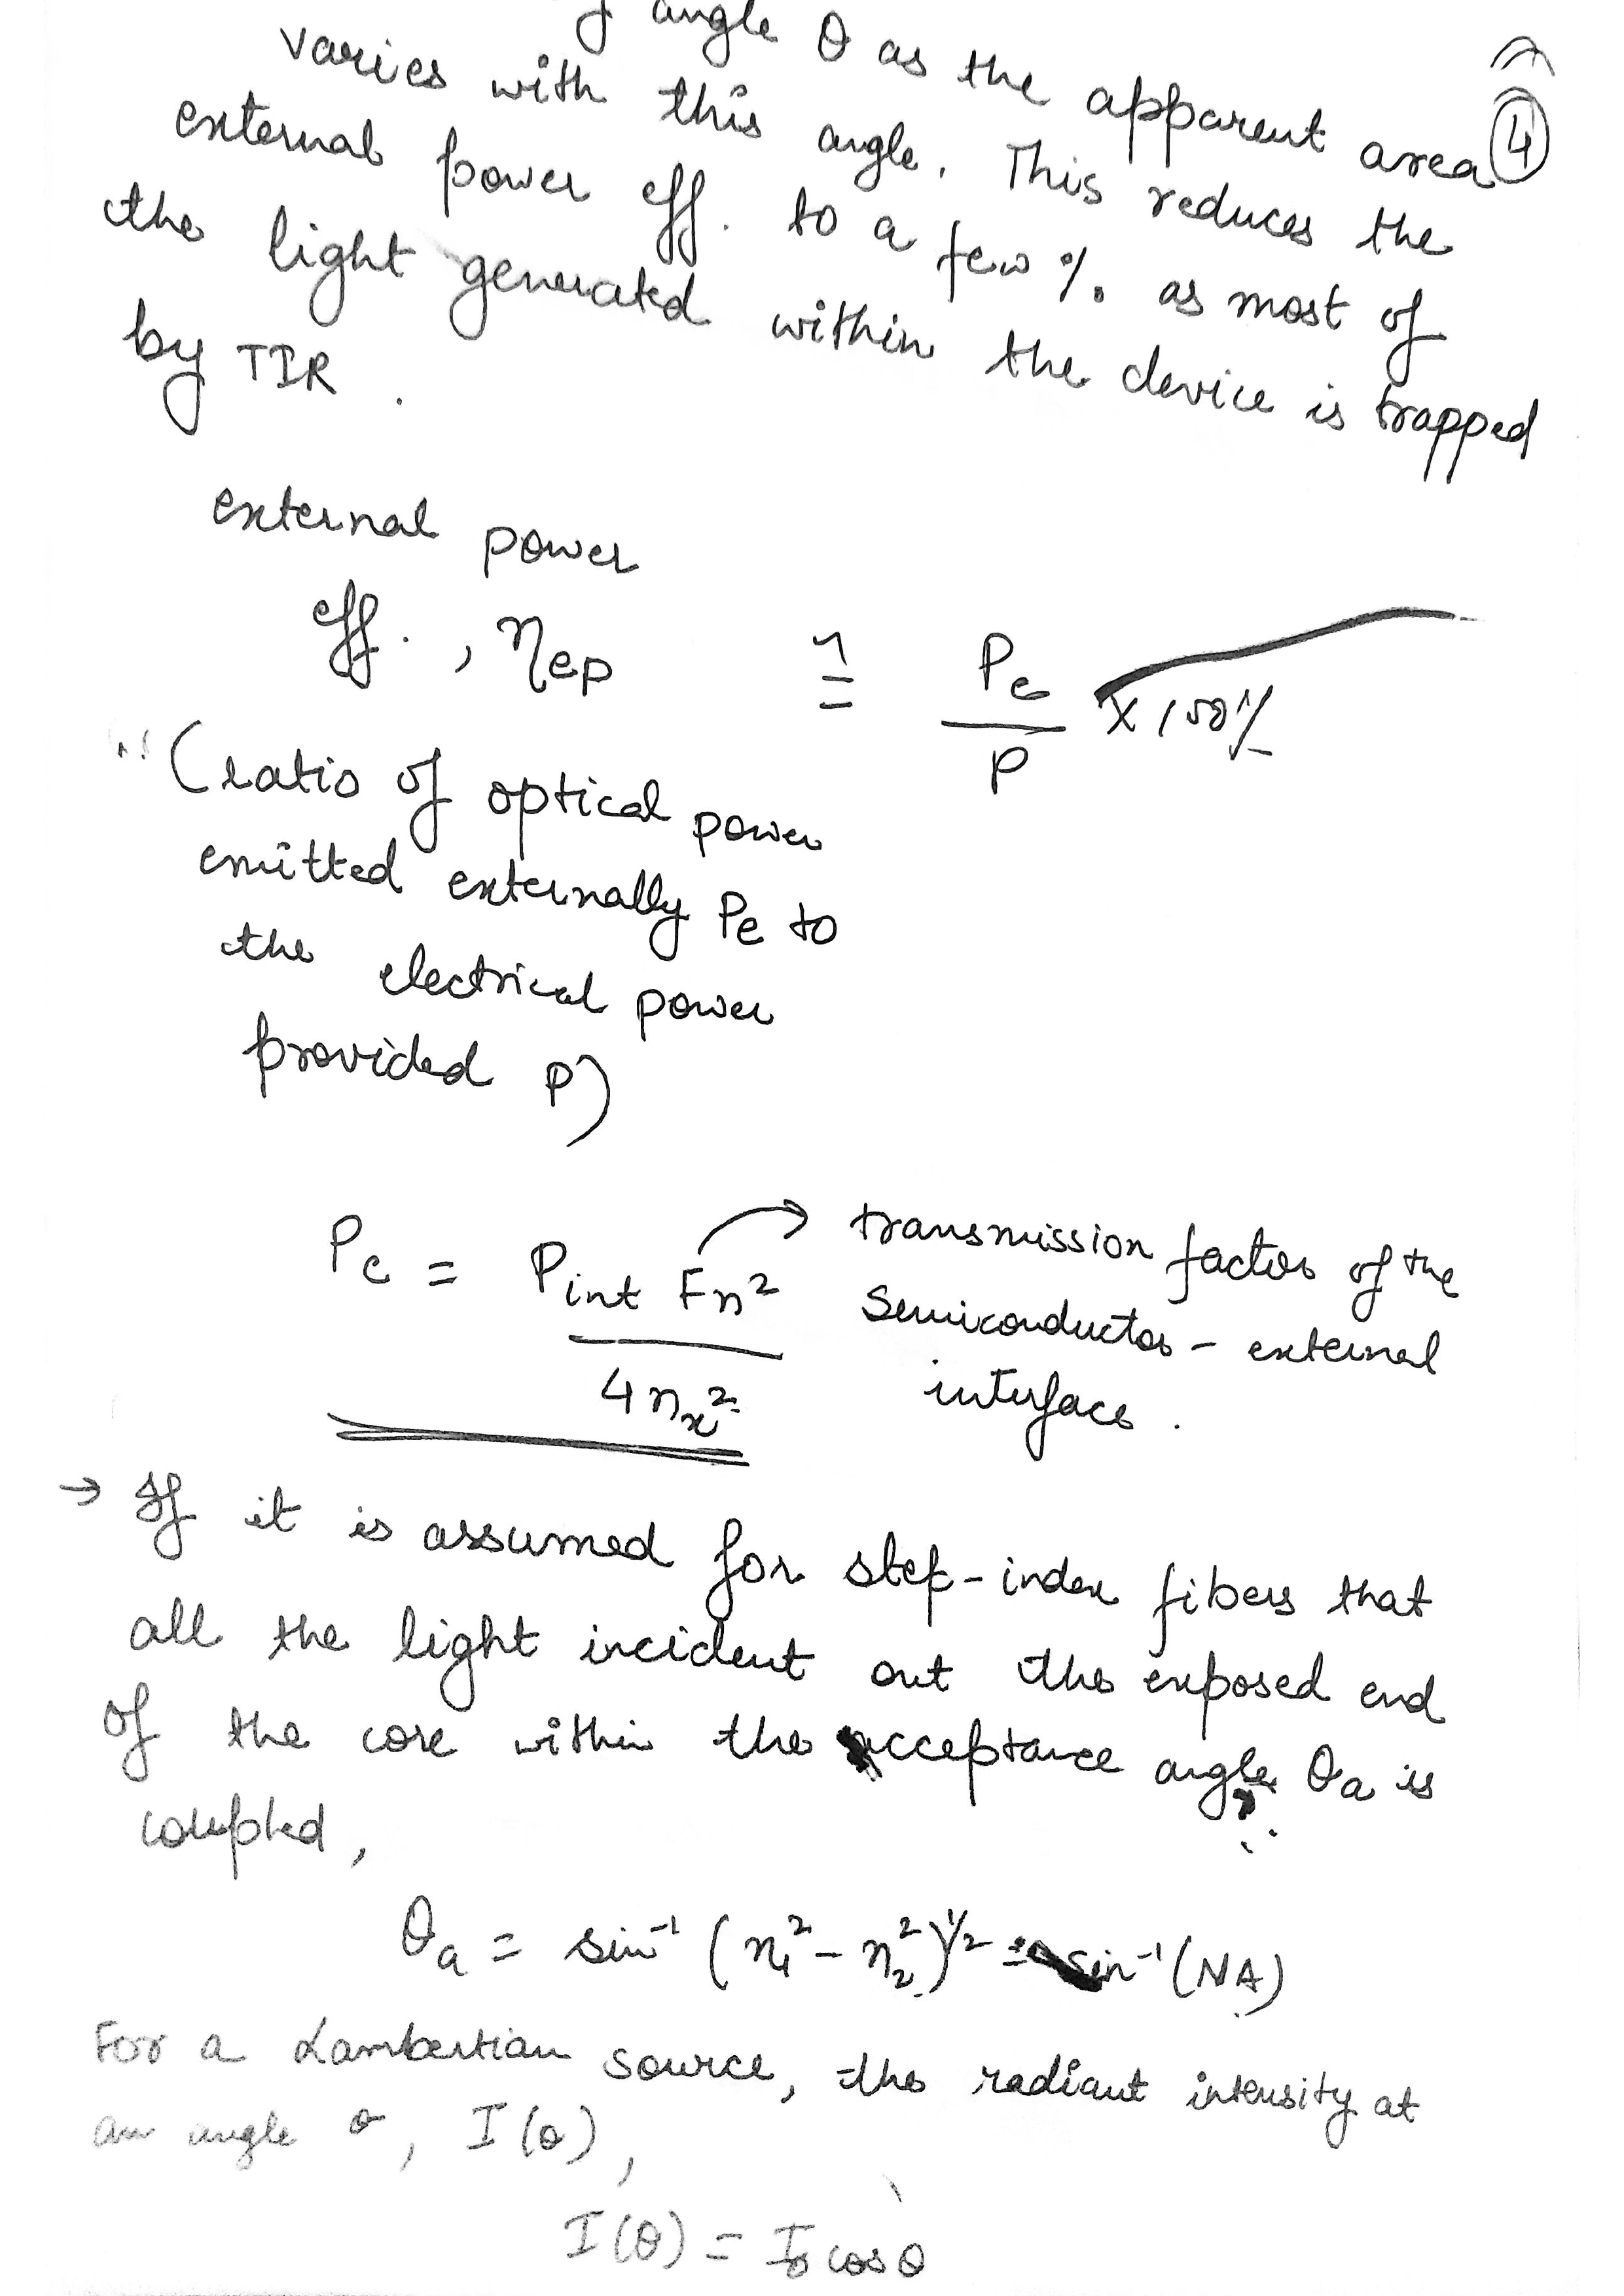 of angle θ as the apparent area
④
varies with this angle. This reduces the
external power eff. to a few %. as most of
the light generated within the device is trapped
by TIR.
external power
eff., ηep ≃ Pe/P × 100%
(ratio of optical power
emitted externally Pe to
the electrical power
provided P)
Pe = Pint Fn² / 4nx² → transmission factor of the
semiconductor - external
interface.
→ If it is assumed for step-index fibers that
all the light incident out the exposed end
of the core within the acceptance angle θa is
coupled,
θa = sin⁻¹ (n₁² - n₂²)^1/2 = sin⁻¹ (NA)
For a Lambertian source, the radiant intensity at
an angle θ, I(θ),
I(θ) = I₀ cos θ